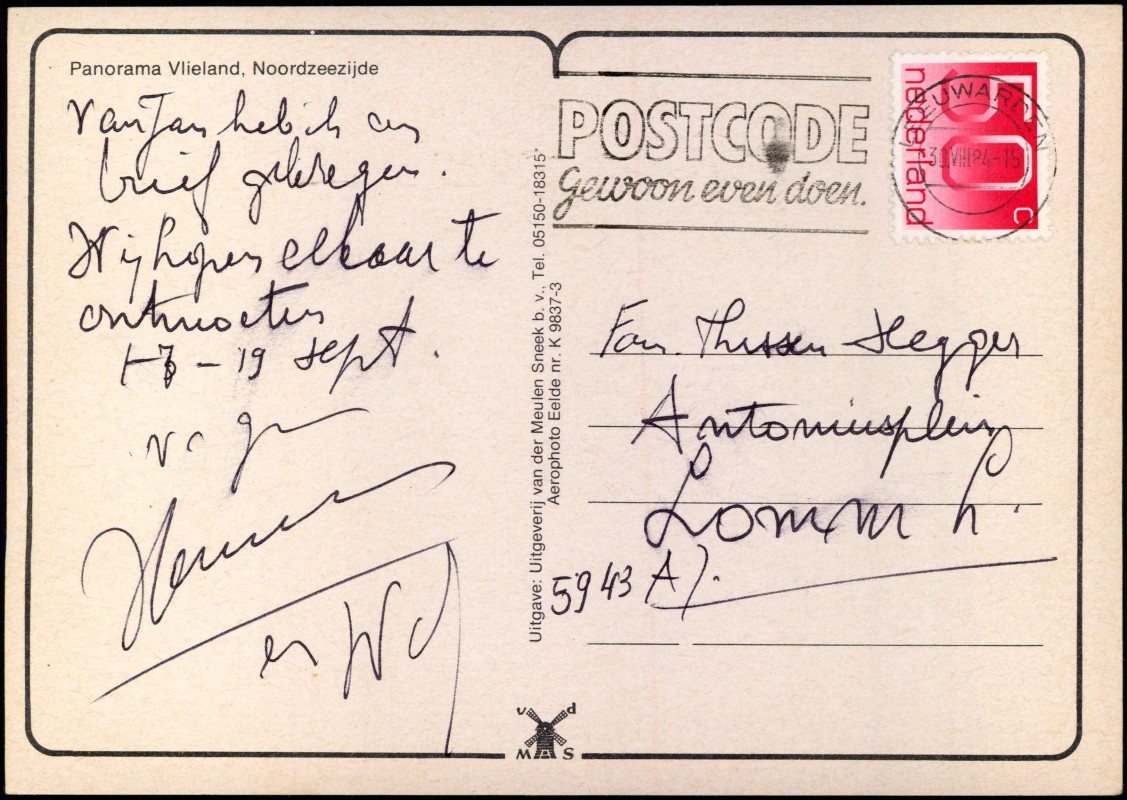 Panorama Vlieland, Noordzeezijde
Van Jan heb ik een
brief gekregen.
Wij hopen elkaar te
ontmoeten
17 - 19 sept.
v
Herman
en
Uitgave: Uitgeverij van der Meulen Sneek b. v., Tel. 05150-18315*
Aerophoto Eelde nr. K 9837-3
POSTCODE
Gewoon even doen.
nederland
60
c
LEEUWARDEN
30 VIII 84-15
Fam. Thissen Hegger
Antoniusplein
Lomm L.
5943 AJ.
v d
M S